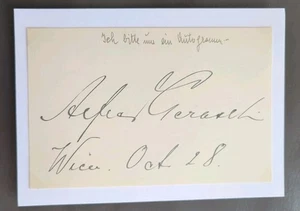 Ich bitte um ein Autogramm –
Alfred Gerasch
Wien. Oct 28.